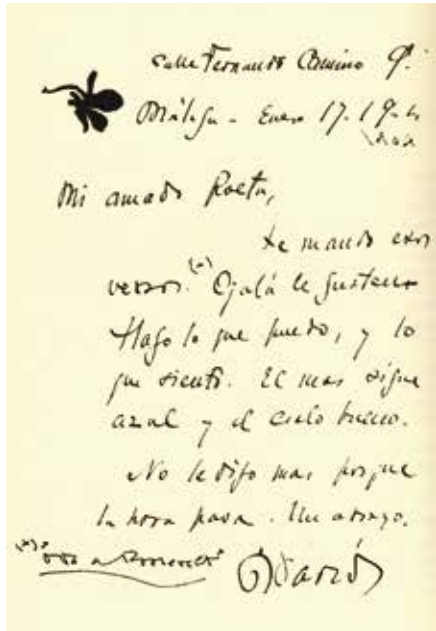 Calle Fernando Camino 9.
Málaga - Enero 17. 19
Mi amado Poeta,
te mando esos
versos. (*) Ojalá le gusten
Hago lo que puedo, y lo
que siento. El mar sigue
azul y el cielo bueno.
No le digo mas porque
la hora pasa. Un abrazo.
(*) Oda a
Darío